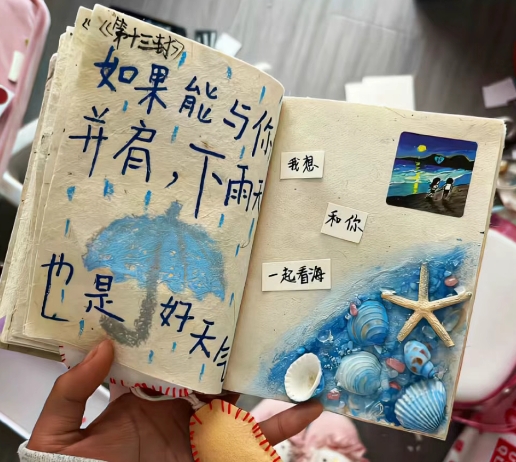 《第十三封》
如果能与你
并肩，下雨天
也是好天气
我想
和你
一起看海